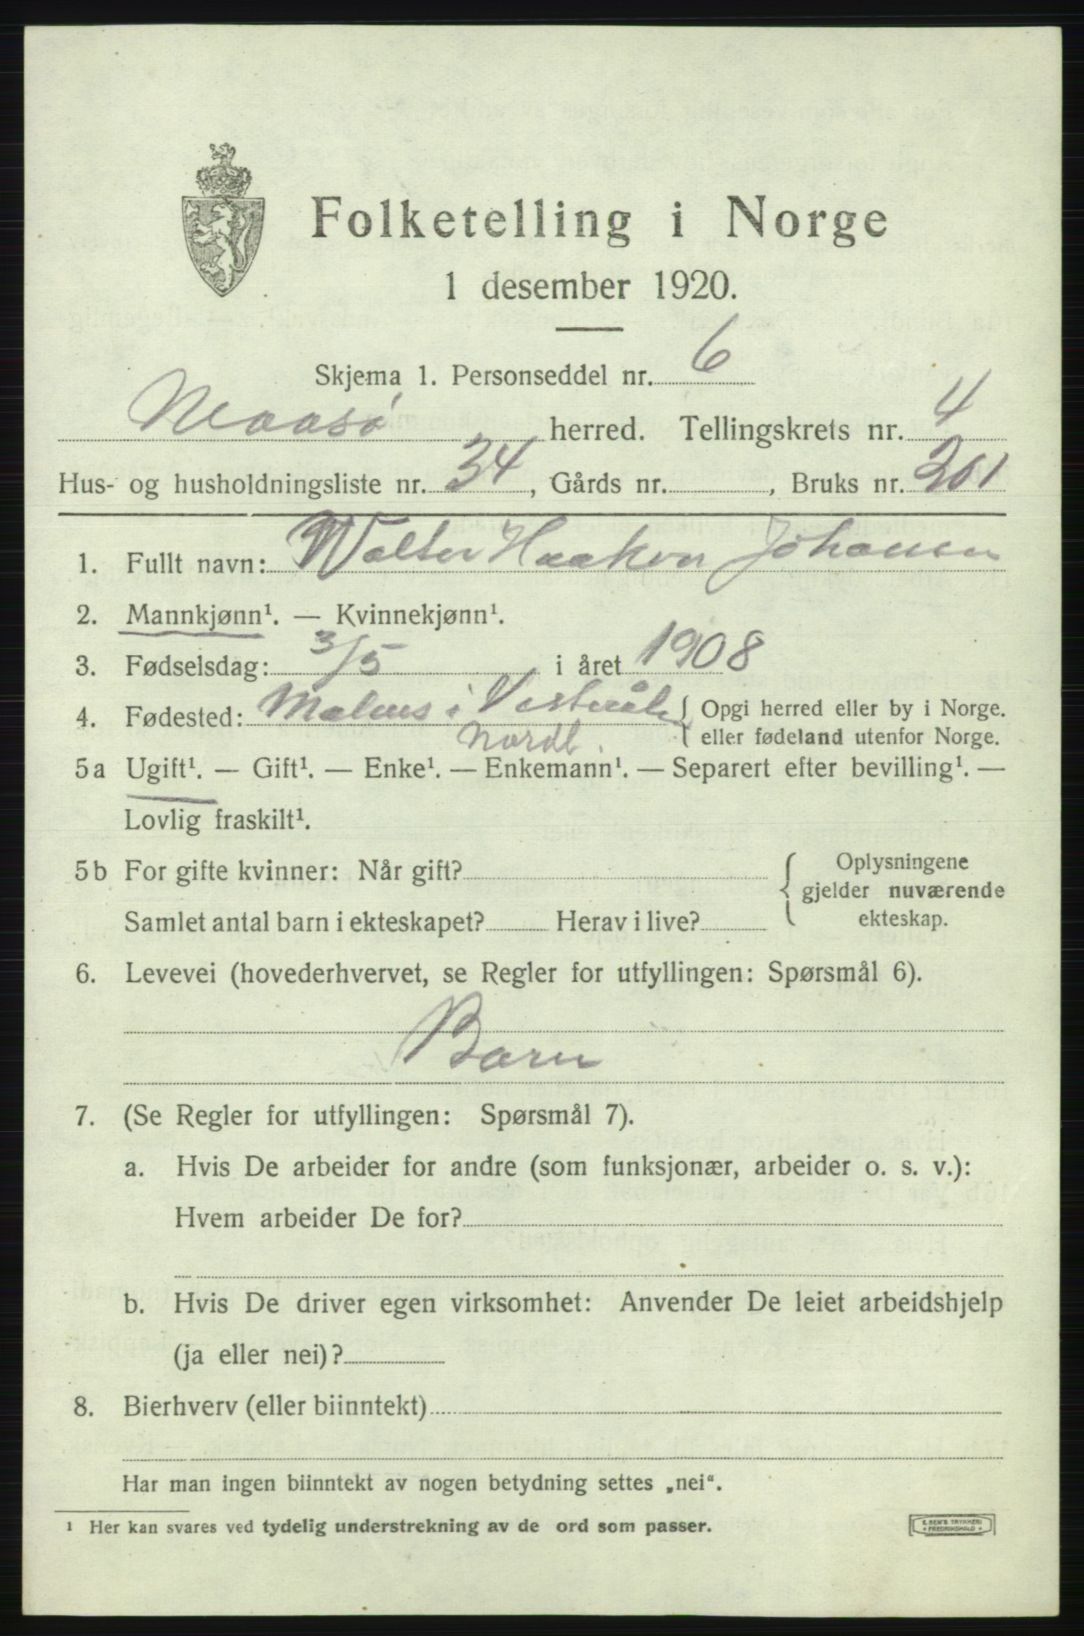 Folketelling i Norge
1 desember 1920.
Skjema 1. Personseddel nr. 6
Maasø herred. Tellingskrets nr. 4
Hus- og husholdningsliste nr. 34, Gårds nr. , Bruks nr. 201
1. Fullt navn: Walter Haakon Johansen
2. Mannkjønn¹. — Kvinnekjønn¹.
3. Fødselsdag: 3/5 i året 1908
4. Fødested: Malnes i Vesterålen { Opgi herred eller by i Norge.
Nordl. eller fødeland utenfor Norge.
5a Ugift¹. — Gift¹. — Enke¹. — Enkemann¹. — Separert efter bevilling¹. —
Lovlig fraskilt¹.
5b For gifte kvinner: Når gift? { Oplysningene
gjelder nuværende
Samlet antal barn i ekteskapet? Herav i live? ekteskap.
6. Levevei (hovederhvervet, se Regler for utfyllingen: Spørsmål 6).
Barn
7. (Se Regler for utfyllingen: Spørsmål 7).
a. Hvis De arbeider for andre (som funksjonær, arbeider o. s. v.):
Hvem arbeider De for?
b. Hvis De driver egen virksomhet: Anvender De leiet arbeidshjelp
(ja eller nei)?
8. Bierhverv (eller biinntekt)
Har man ingen biinntekt av nogen betydning settes „nei“.
¹ Her kan svares ved tydelig understrekning av de ord som passer.
TRYKKERI
FREDRIKSHALD